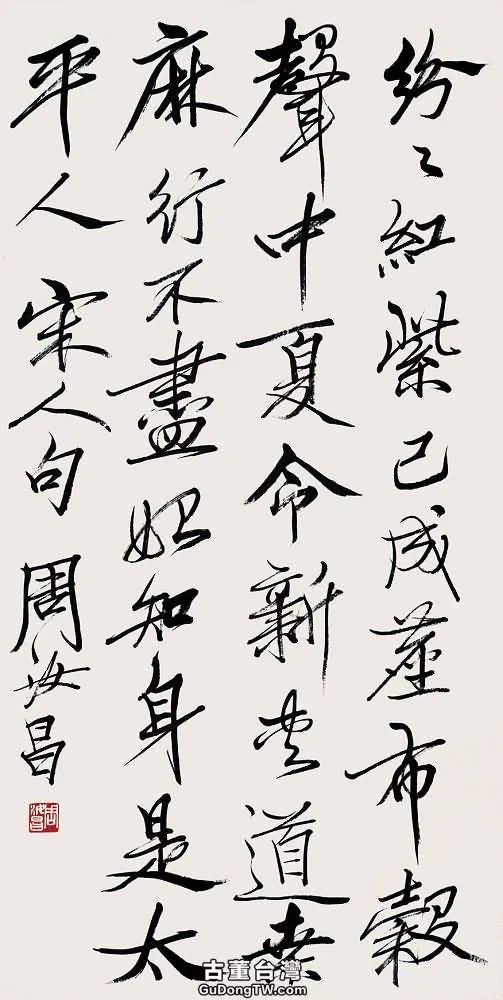 紛〻紅紫已成塵布穀
聲中夏令新夾道桑
麻行不盡始知身是太
平人 宋人句 周汝昌
古董台灣
GuDongTW.com